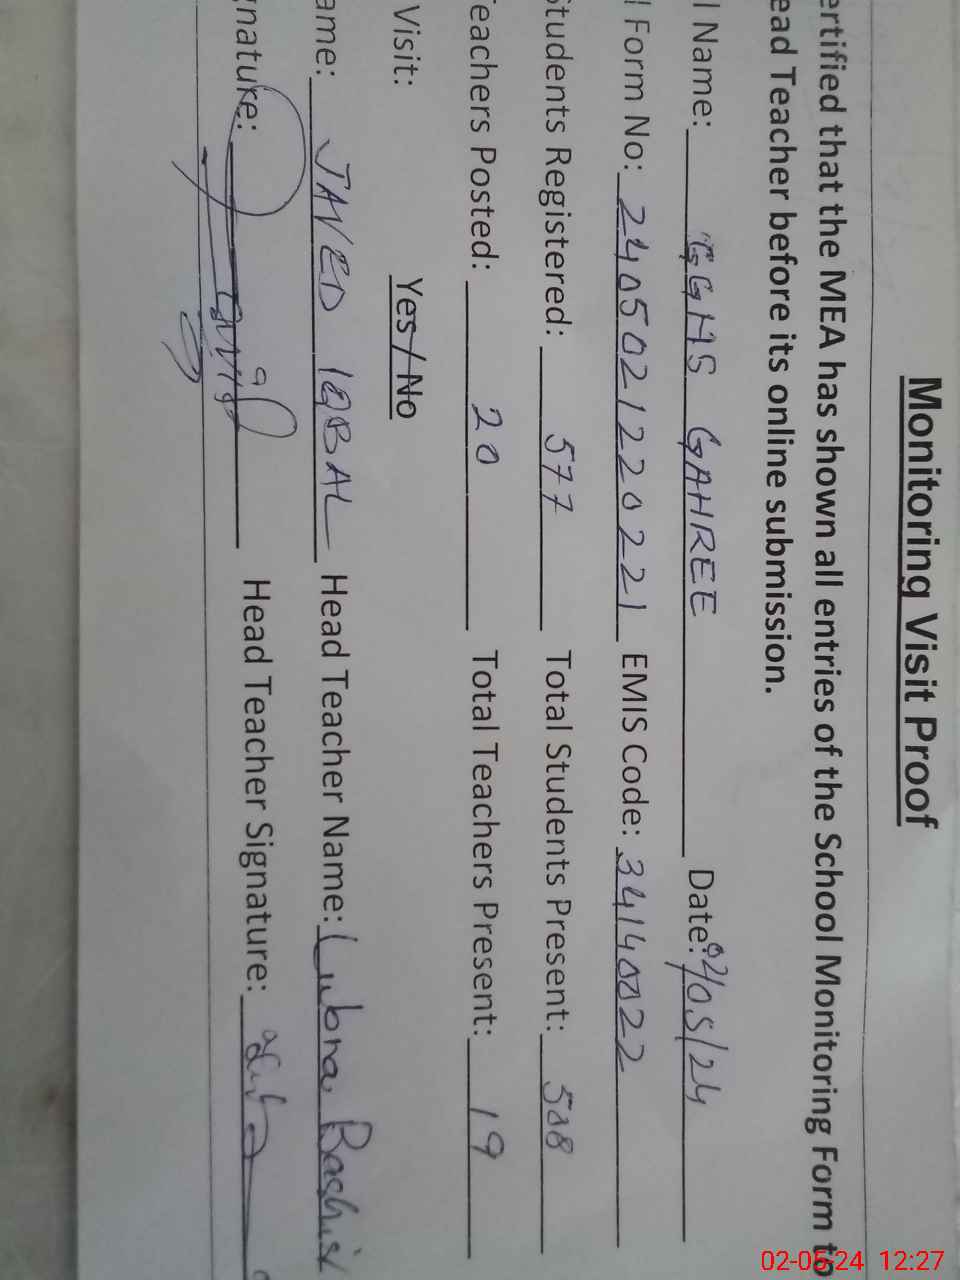 Monitoring Visit Proof
ertified that the MEA has shown all entries of the School Monitoring Form to
ead Teacher before its online submission.
l Name: GGHS GAHREE Date: 02/05/24
l Form No: 2405021220221 EMIS Code: 34140022
Students Registered: 577 Total Students Present: 508
eachers Posted: 20 Total Teachers Present: 19
Visit: Yes / No
ame: JAVED IQBAL Head Teacher Name: Lubna Bashir
gnature: Head Teacher Signature:
02-05-24 12:27